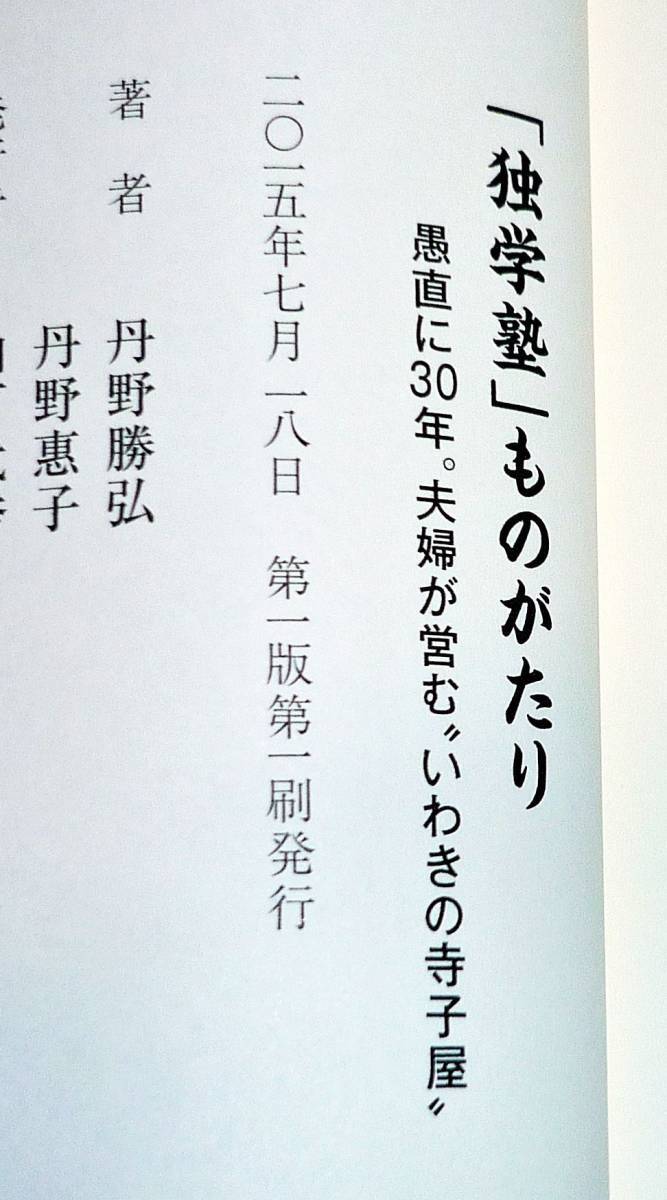 「独学塾」ものがたり
愚直に30年。夫婦が営む〝いわきの寺子屋〟
二〇一五年七月一八日　第一版第一刷発行
著　者　丹野勝弘
丹野惠子